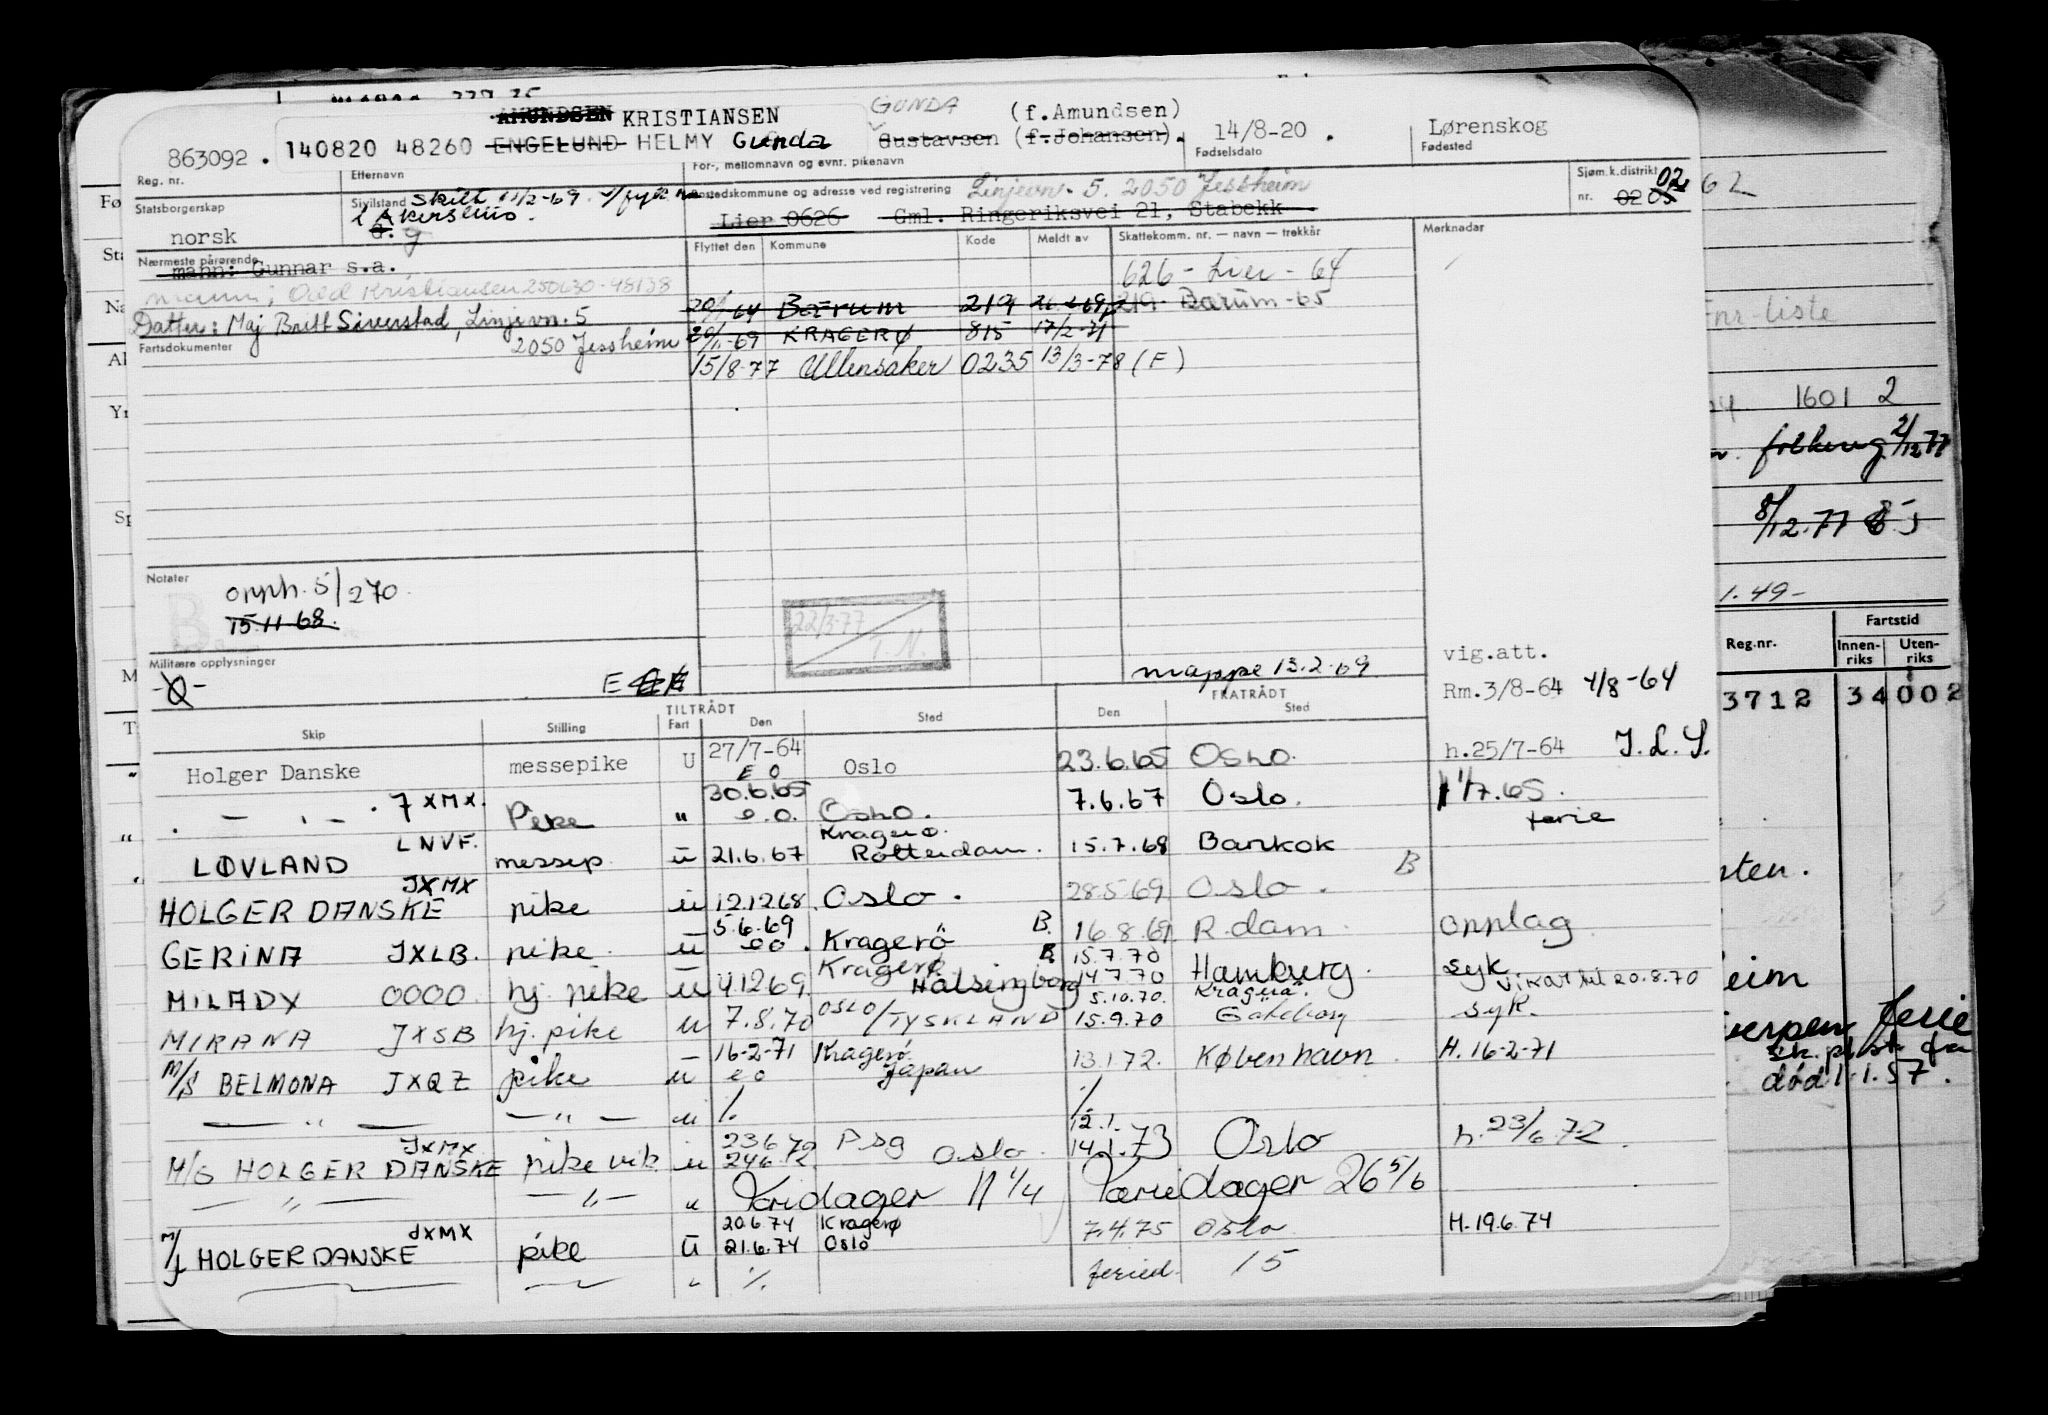 AMUNDSEN KRISTIANSEN GUNDA (f.Amundsen)
863092. 140820 48260 ENGELUND HELMY Gunda Gustavsen (f.Johansen). 14/8-20. Lørenskog
Reg. nr. Etternavn For-, mellomnavn og evnt. pikenavn Fødselsdato Fødested
Statsborgerskap Sivilstand Skilt 11/2-69 v/fylk
i Akershus.
norsk g
Bostedskommune og adresse ved registrering Linjevn. 5. 2050 Jessheim
Lier 0626 Gml. Ringeriksvei 21, Stabekk
Sjøm.k.distrikt nr. 02 05 02
Nærmeste pårørende
mann: Gunnar s.a.
mann: Odd Kristiansen 250630-48138
Datter: Maj Britt Siverstad, Linjevn. 5
2050 Jessheim
Fartsdokumenter
Flyttet den Kommune Kode Meldt av Skattekomm. nr. — navn — trekkår Merknader
626 - Lier - 64
20/1-64 Bærum 219 219 - Bærum - 65
20/11-69 KRAGERØ 815 17/2-71
15/8-77 Ullensaker 0235 13/3-78 (F)
Notater
opph. 5/2 70.
15.11.68.
22/3-77
T.N.
Militære opplysninger
mappe 13.2.69
vig.att.
Rm.3/8-64 4/8-64
TILTRÅDT FRATRÅDT
Skip Stilling Fart Den Sted Den Sted
Holger Danske messepike U 27/7-64 Oslo 23.6.65 Oslo. h.25/7-64 J.L.S.
E O
— " — JXMX. Pike " 30.6.65 e.o. Oslo. 7.6.67 Oslo. 1/7.65. ferie
LØVLAND LNVF. messep. u 21.6.67 Kragerø. Rotterdam. 15.7.68 Bankok
HOLGER DANSKE JXMX pike u 12.12.68 Oslo. 28.5.69 Oslo. B
GERINA JXLB. pike. u 5.6.69 eo. Kragerö B. 16.8.69 R.dam. opplag
MILADY OOOO. hj. pike u 4.12.69. Kragerø Hälsingborg B. 15.7.70 14770 Hamburg. syk
MIRANA JXSB hj. pike u 7.8.70 OSLO/TYSKLAND 5.10.70. 15.9.70 Kragerø. Göteborg vikar til 20.8.70 syk.
M/S BELMONA JXQZ pike u 16-2-71 eo Kragerø. Japan 13.1.72. København. H. 16-2-71
— " — — " — u %. %
M/S HOLGER DANSKE JXMX pike vik. u 23672 246.72. Psg Oslo. 12.1. 14.1.73 Oslo h. 23/6 72.
— " — — " — " Feridager 11 1/4 Feriedager 26 5/6
M/S HOLGER DANSKE JXMX pike u 20.6.74 21.6.74 Kragerø Oslo 7.4.75 Oslo H.19.6.74
" %. feried. 15
62
Fnr-liste
1601 2
folkereg 2/12 77
8/12.77
1.49-
Reg.nr. Fartstid
Innen-riks Uten-riks
3712 34 002
sten.
eim
ferie
død 1.1.57.